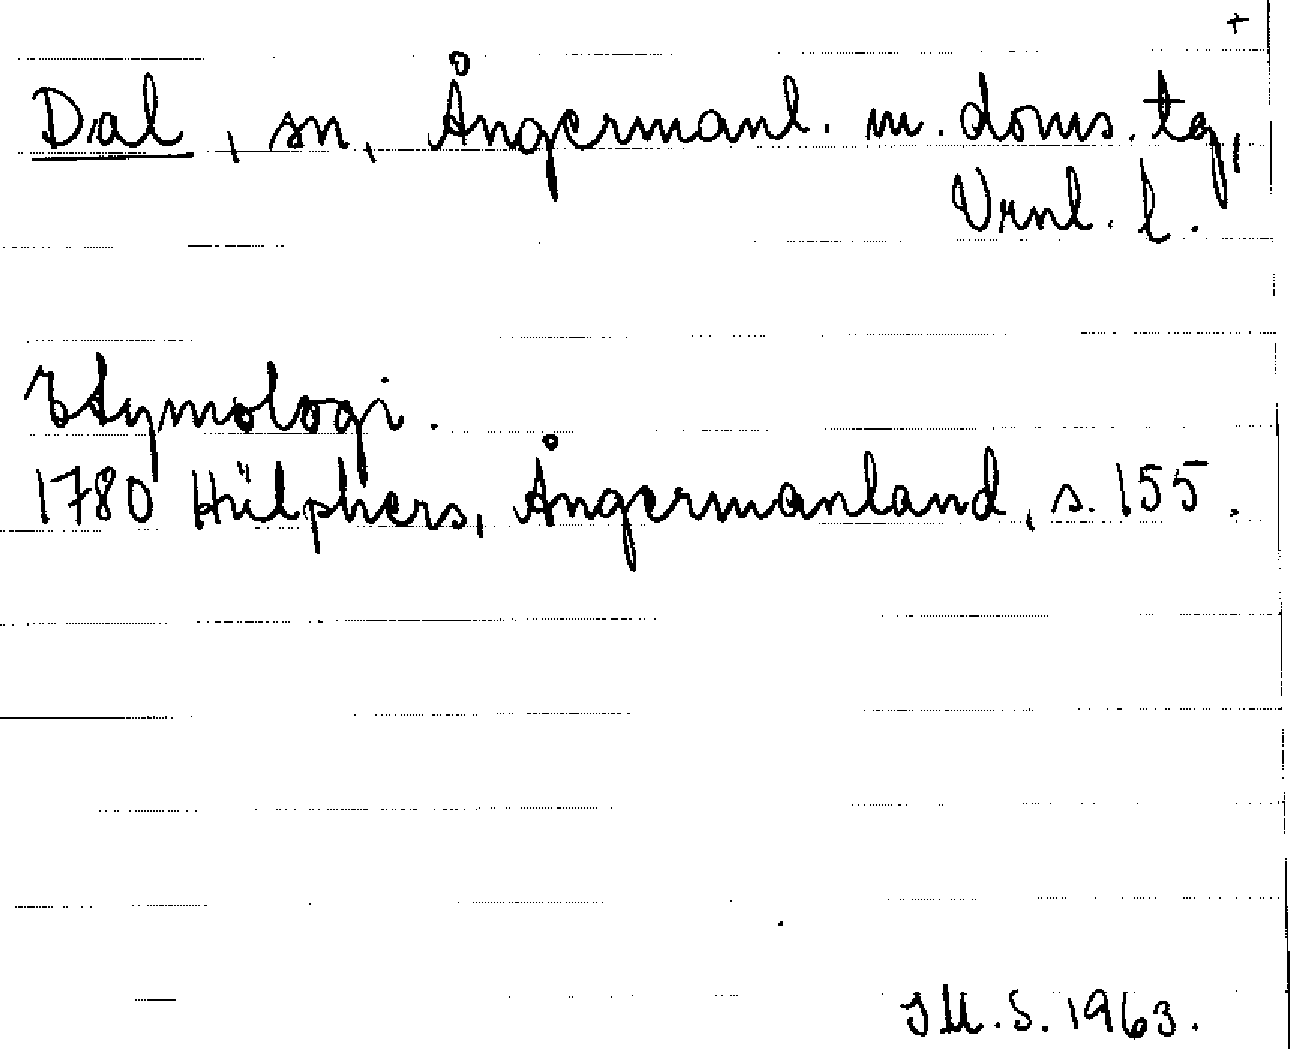 +
Dal, sn, Ångermanl. m. doms. tg,
Vrnl. l.
Etymologi.
1780 Hülphers, Ångermanland, s. 155.
JM.S. 1963.